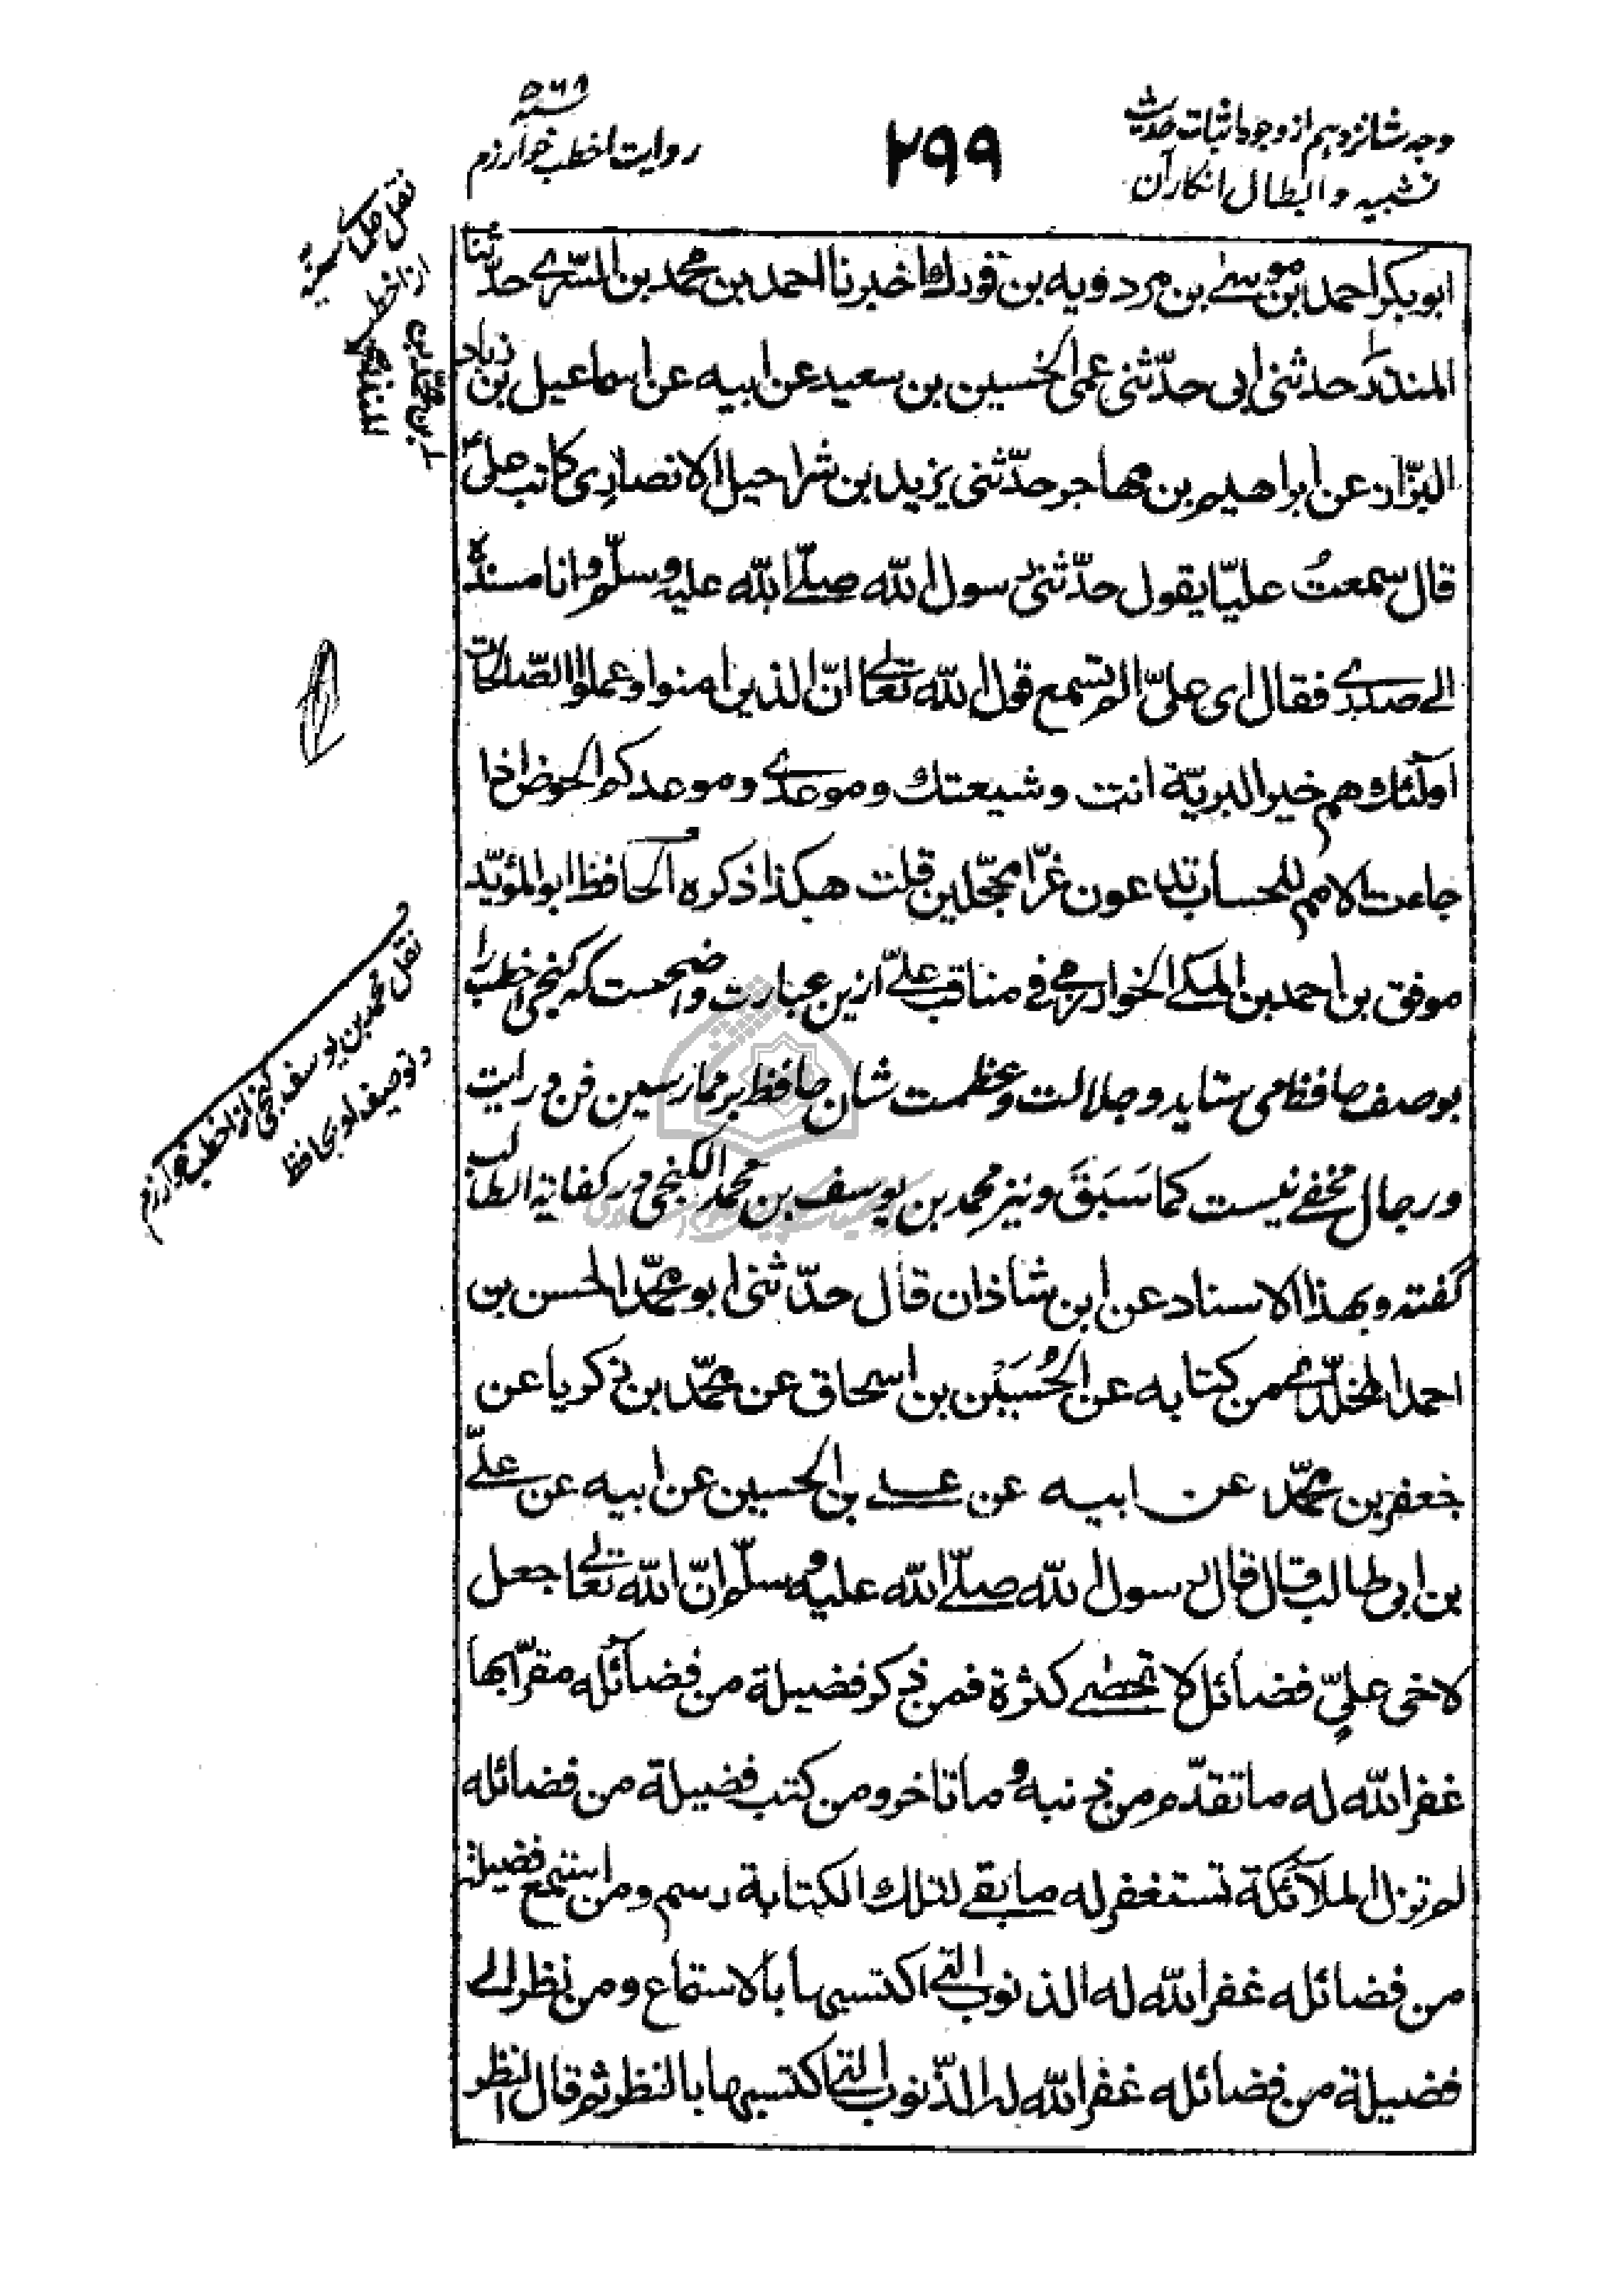 وجه شانزدهم از وجوه اثبات حدیث
تشبیه و ابطال انکار آن
۲۹۹
روایت اخطب خوارزم
سنه ۵۶۸
ابوبکر احمد بن موسی بن مردویه بن فورك اخبرنا احمد بن محمد بن السّری حدّثنا
المنذر حدثنی ابی حدّثنی عمی الحسین بن سعید عن ابیه عن اسماعیل بن زیاد
البزّاز عن ابراهیم بن مهاجر حدّثنی یزید بن شراحیل الانصاری کاتب علیّ
قال سمعتُ علیّا یقول حدّثنی رسول الله صلّی الله علیه وسلّم وانا مسندُه
الی صدری فقال ای علیّ الم تسمع قول الله تعالی انّ الذین امنوا وعملوا الصّالحات
اولٓئك هم خیر البریّة انت وشیعتك وموعدی وموعدکم الحوض اذا
جاءت الامم للحساب تدعون غرّا محجّلین قلت هکذا ذکره الحافظ ابو المؤیّد
موفق بن احمد بن المکی الخوارزمی فی مناقب علیّ ازین عبارت واضحست که کنجی اخطب را
بوصف حافظ می ستاید و جلالت و عظمت شان حافظ بر ممارسین فن درایت
و رجال مخفی نیست کما سَبَقَ و نیز محمد بن یوسف بن محمد الکنجی در کفایة الطالب
گفته وبهذا الاسناد عن ابن شاذان قال حدّثنی ابو محمّد الحسن بن
احمد المخلّدی من کتابه عن الحُسَین بن اسحاق عن محمّد بن زکریا عن
جعفر بن محمّد عن ابیه عن علی بن الحسین عن ابیه عن علیّ
بن ابی طالب قال قال رسول الله صلّی الله علیه وسلّم انّ الله تعالی جعل
لاخی علیٍّ فضائل لا تحصٰی کثرة فمن ذکر فضیلة من فضآئله مقرّا بها
غفر الله له ما تقدّم من ذنبه وما تاخر ومن کتب فضیلة من فضائله
لم تزل الملآئکة تستغفر له ما بقی لتلك الکتابة رسم ومن استمع فضیلة
من فضائله غفر الله له الذنوب التی اکتسبها بالاستماع ومن نظر الی
فضیلة من فضائله غفر الله له الذّنوب التی اکتسبها بالنظر ثم قال النظر
نقل محمد بن یوسف کنجی از اخطب خوارزم
و توصیف او بحافظ